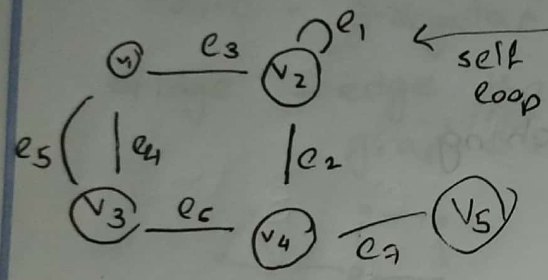 e1
e3
v1
v2
self
loop
e5
e4
e2
v3
e6
v4
e7
v5